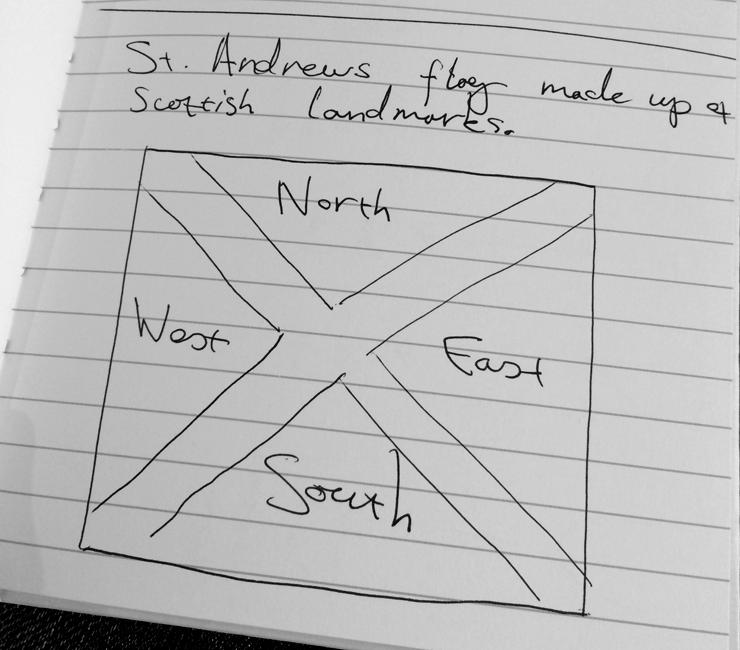 St. Andrews flag made up of
Scottish landmarks.
North
West
East
South